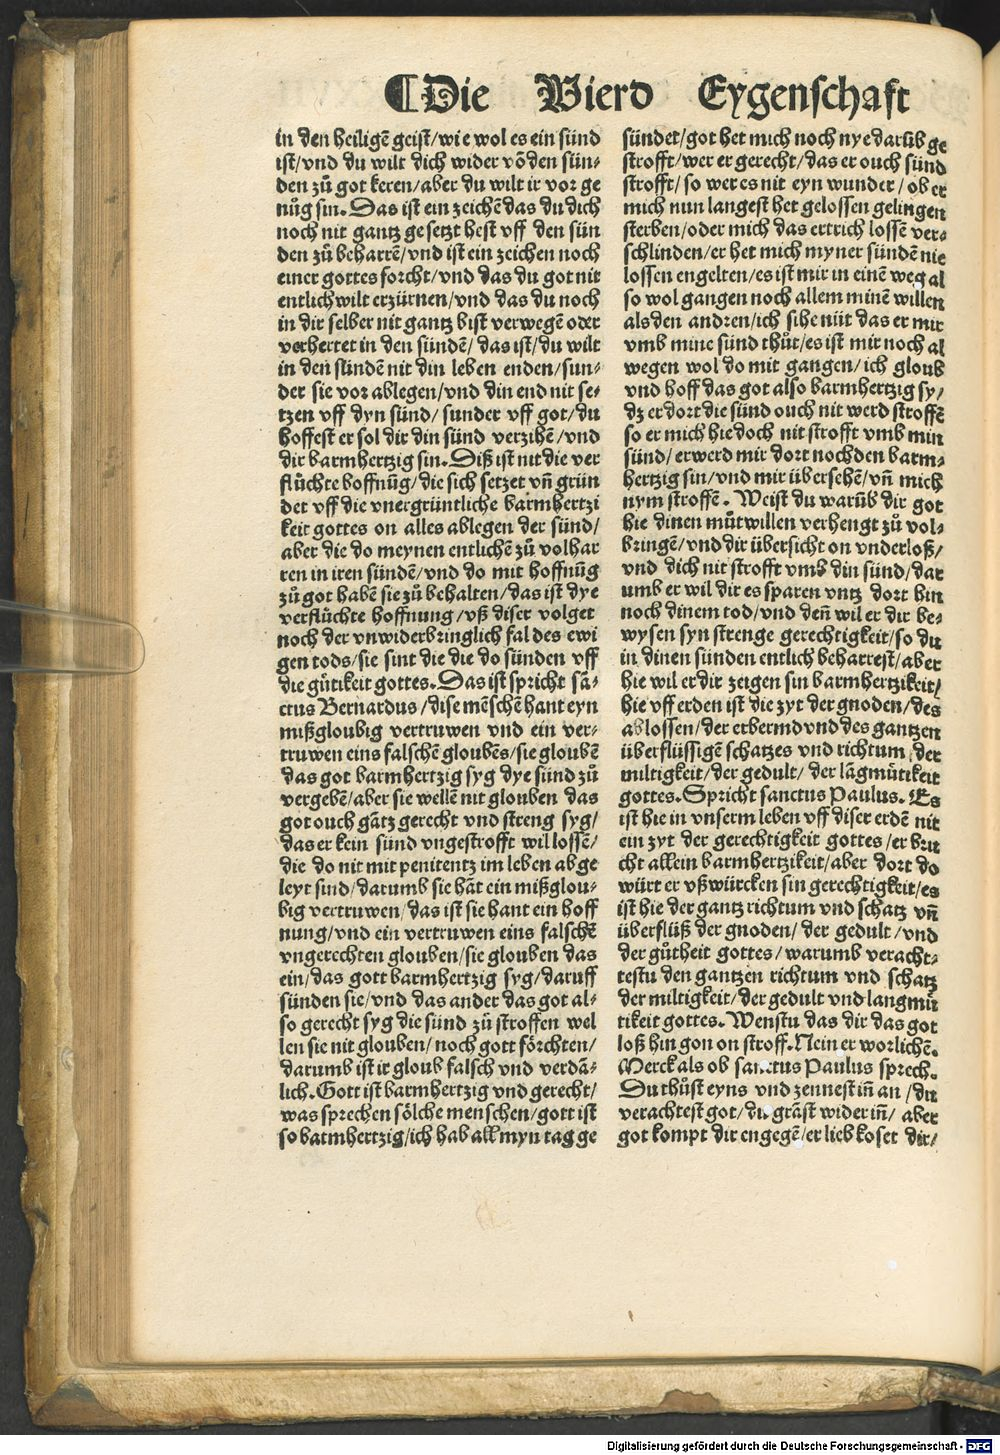 ¶Die Vierd Eygenschaft
in den heiligē geist/wie wol es ein sünd
ist/vnd du wilt dich wider vō den sün-
den zů got keren/aber du wilt ir vor ge
nůg sin. Das ist ein zeichē das du dich
noch nit gantz gesetzt hest vff den sün
den zů beharrē/vnd ist ein zeichen noch
einer gottes forcht/vnd das du got nit
entlich wilt erzürnen/vnd das du noch
in dir selber nit gantz bist verwegē oder
verhertet in den sündē/das ist/du wilt
in den sünden nit din leben enden/sun-
der sie vor ablegen/vnd din end nit se-
tzen vff dyn sünd/sunder vff got/du
hoffest er sol dir din sünd verzihē/vnd
dir barmhertzig sin. Diß ist nit die ver
flůchte hoffnūg/die sich setzet vñ grün
det vff die vnergrüntliche barmhertzi
keit gottes on alles ablegen der sünd/
aber die do meynen entlichē zů volhar
ren in iren sündē/vnd do mit hoffnūg
zů got habē sie zů behalten/das ist dye
verflůchte hoffnung/vß diser volget
noch der vnwiderbringlich fal des ewi
gen tods/sie sint die die do sünden vff
die gůtikeit gottes. Das ist spricht sā-
ctus Bernardus/dise mēschē hant eyn
mißgloubig vertruwen vnd ein ver-
truwen eins falschē gloubēs/sie gloubē
das got barmhertzig syg dye sünd zů
vergebē/aber sie wellē nit glouben das
got ouch gātz gerecht vnd streng syg/
das er kein sünd vngestrofft wil lossē/
die do nit mit penitentz im leben abge
leyt sind/darumb sie hāt ein mißglou-
big vertruwen/das ist sie hant ein hoff
nung/vnd ein vertruwen eins falschē
vngerechten glouben/sie glouben das
ein/das gott barmhertzig syg/daruff
sünden sie/vnd das ander das got al-
so gerecht syg die sünd zů stroffen wel
len sie nit glouben/noch gott förchten/
darumb ist ir gloub falsch vnd verdā-
lich. Gott ist barmhertzig vnd gerecht/
was sprechen sölche menschen/gott ist
so barmhertzig/ich hab all myn tag ge
sündet/got het mich noch nye darūb ge
strofft/wer er gerecht/das er ouch sünd
strofft/so wer es nit eyn wunder/ob er
mich nun langest het gelossen gelingen
sterben/oder mich das ertrich lossē ver-
schlinden/er het mich myner sündē nie
lossen engelten/es ist mir in einē weg al
so wol gangen noch allem minē willen
als den andren/ich sihe nüt das er mir
vmb mine sünd thůt/es ist mir noch al
wegen wol do mit gangen/ich gloub
vnd hoff das got also barmhertzig sy/
dz er dort die sünd ouch nit werd stroffē
so er mich hie doch nit strofft vmb min
sünd/er werd mir dort noch den barm-
hertzig sin/vnd mir übersehē/vñ mich
nym stroffē. Weist du warūb dir got
hie dinen můtwillen verhengt zů vol-
bringē/vnd dir übersicht on vnderloß/
vnd dich nit strofft vmb din sünd/dar
umb er wil dir es sparen vntz dort bin
noch dinem tod/vnd deñ wil er dir be-
wysen syn strenge gerechtigkeit/so du
in dinen sünden entlich beharrest/aber
hie wil er dir zeigen sin barmhertzikeit/
hie vff erden ist die zyt der gnoden/des
ablossen/der erbermd vnd des gantzen
überflüssigē schatzes vnd richtum der
miltigkeit/der gedult/der lāgmütikeit
gottes. Spricht sanctus Paulus. Es
ist hie in vnserm leben vff diser erdē nit
ein zyt der gerechtigkeit gottes/er bru
cht allein barmhertzikeit/aber dort do
würt er vßwürcken sin gerechtigkeit/es
ist hie der gantz richtum vnd schatz vñ
überflüß der gnoden/der gedult/vnd
der gůtheit gottes/warumb veracht-
testu den gantzen richtum vnd schatz
der miltigkeit/der gedult vnd langmü
tikeit gottes. Wenstu das dir das got
loß hin gon on stroff. Nein er worlichē.
Merck als ob sanctus Paulus sprech.
Du thůst eyns vnd zennest iñ an/du
verachtest got/du grāst wider iñ/aber
got kompt dir engegē/er liebkoset dir/
Digitalisierung gefördert durch die Deutsche Forschungsgemeinschaft - DFG